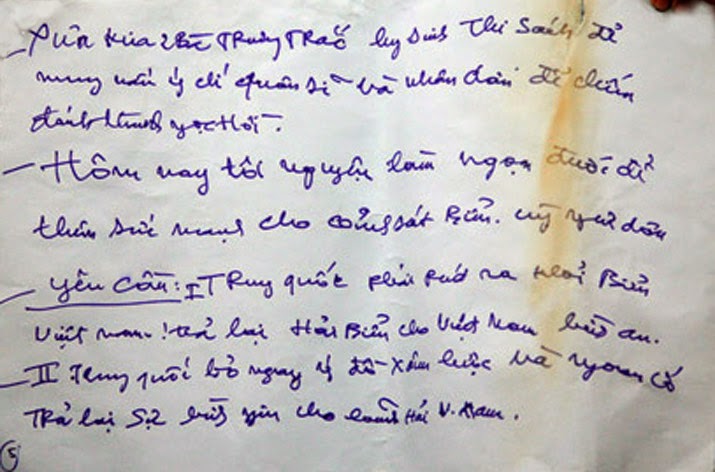 - Xưa kia 2 Bà Trưng Trắc hy sinh Thi Sách để
nung nấu ý chí quân sĩ và nhân dân để chiến
đánh
- Hôm nay tôi nguyện làm ngọn đuốc để
thêm sức mạnh cho cảnh sát Biển. ngư dân
- yêu cầu: I Trung quốc phải rút ra khỏi Biển
Việt nam! trả lại Hải Biển cho Việt Nam an.
- II Trung quốc bỏ ngay ý đồ xâm lược và ngoan cố
Trả lại Sự yên cho lãnh Hải V. Nam.
5